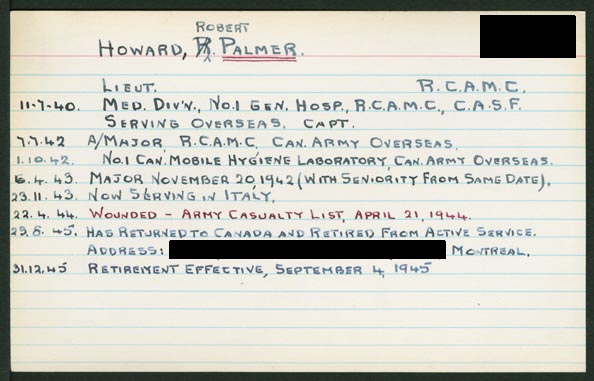 ROBERT
HOWARD, R. PALMER.
LIEUT. R.C.A.M.C.
11-7-40. MED. DIV'N., No.1 GEN. HOSP., R.C.A.M.C., C.A.S.F.
SERVING OVERSEAS. CAPT.
7.7.42 A/MAJOR, R.C.A.M.C. CAN. ARMY OVERSEAS.
1.10.42. No.1 CAN. MOBILE HYGIENE LABORATORY, CAN. ARMY OVERSEAS.
6.4.43 MAJOR NOVEMBER 20, 1942 (WITH SENIORITY FROM SAME DATE).
23.11.43. NOW SERVING IN ITALY.
22.4.44. WOUNDED - ARMY CASUALTY LIST, APRIL 21, 1944.
29.8.45. HAS RETURNED TO CANADA AND RETIRED FROM ACTIVE SERVICE.
ADDRESS: MONTREAL.
31.12.45 RETIREMENT EFFECTIVE, SEPTEMBER 4, 1945